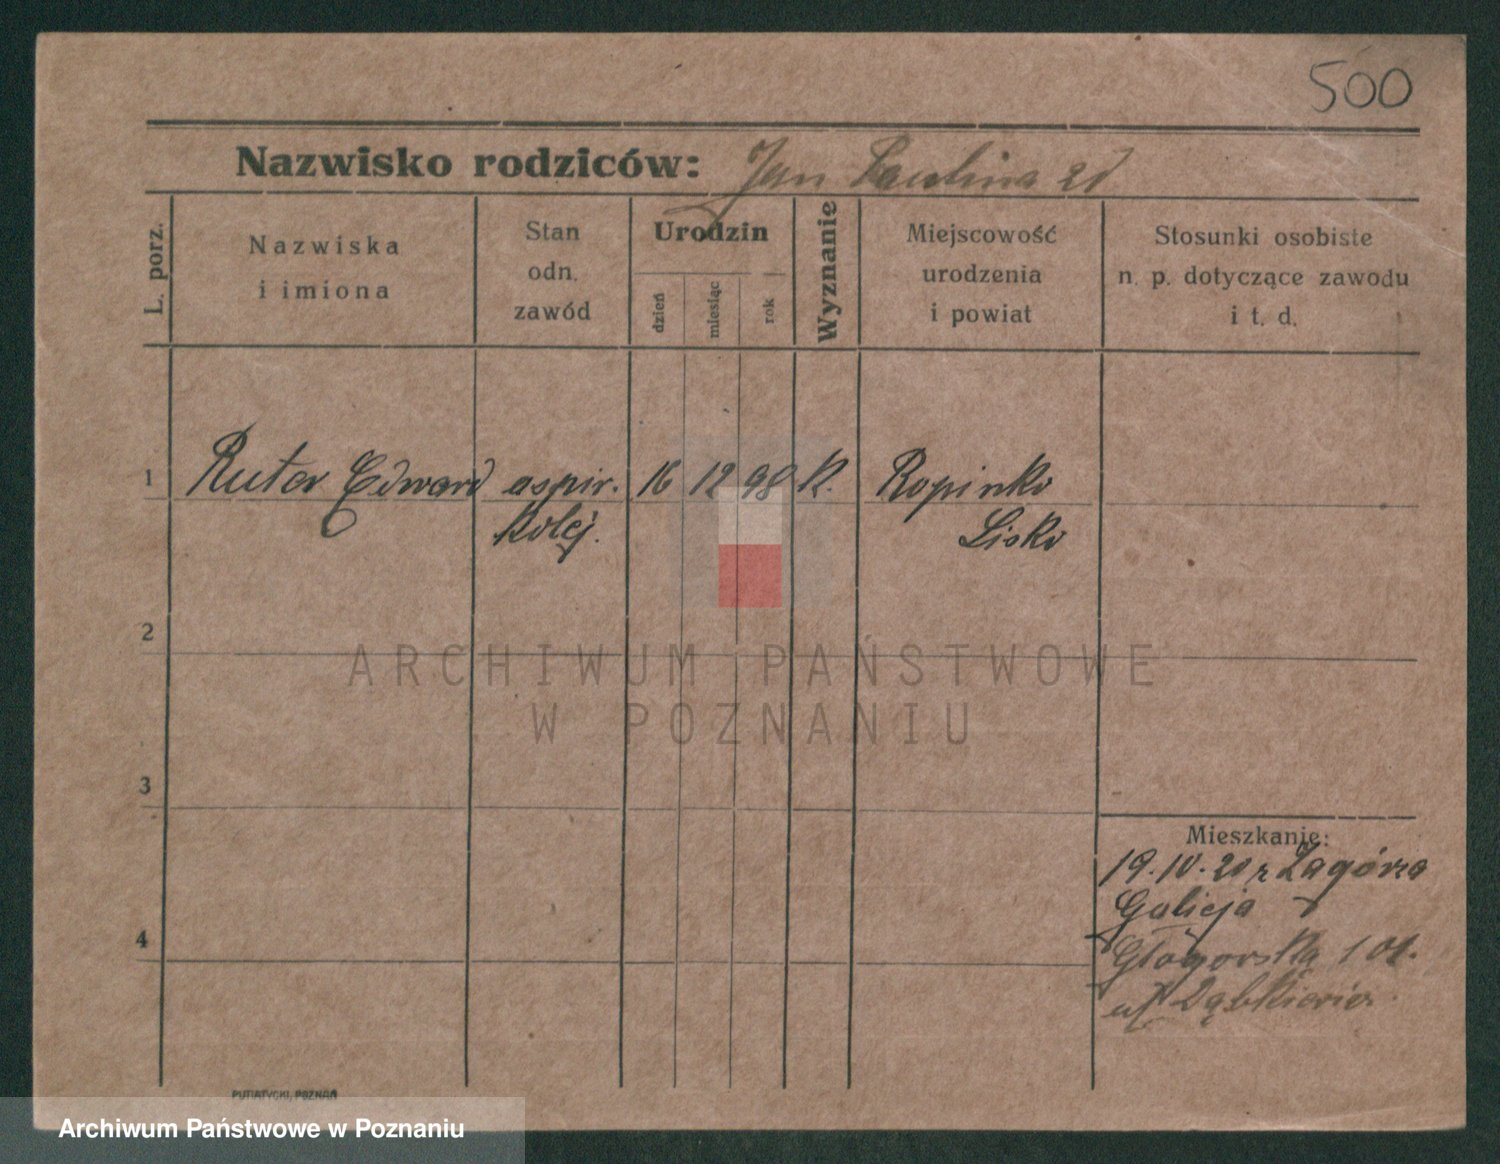 500
Nazwisko rodziców: Jan Paulina
L. porz.
Nazwiska
i imiona
Stan
odn.
zawód
Urodzin
dzień
miesiąc
rok
Wyznanie
Miejscowość
urodzenia
i powiat
Stosunki osobiste
n. p. dotyczące zawodu
i t. d.
1 Ruter Edward aspir. 16 12 98 K. Ropinka
kolej. Lisko
2
3
4
ARCHIWUM PAŃSTWOWE
W POZNANIU
Mieszkanie:
19.IV.20 z Zagórza
Galicja
Głogowska 101.
PUTIATYCKI, POZNAŃ
Archiwum Państwowe w Poznaniu